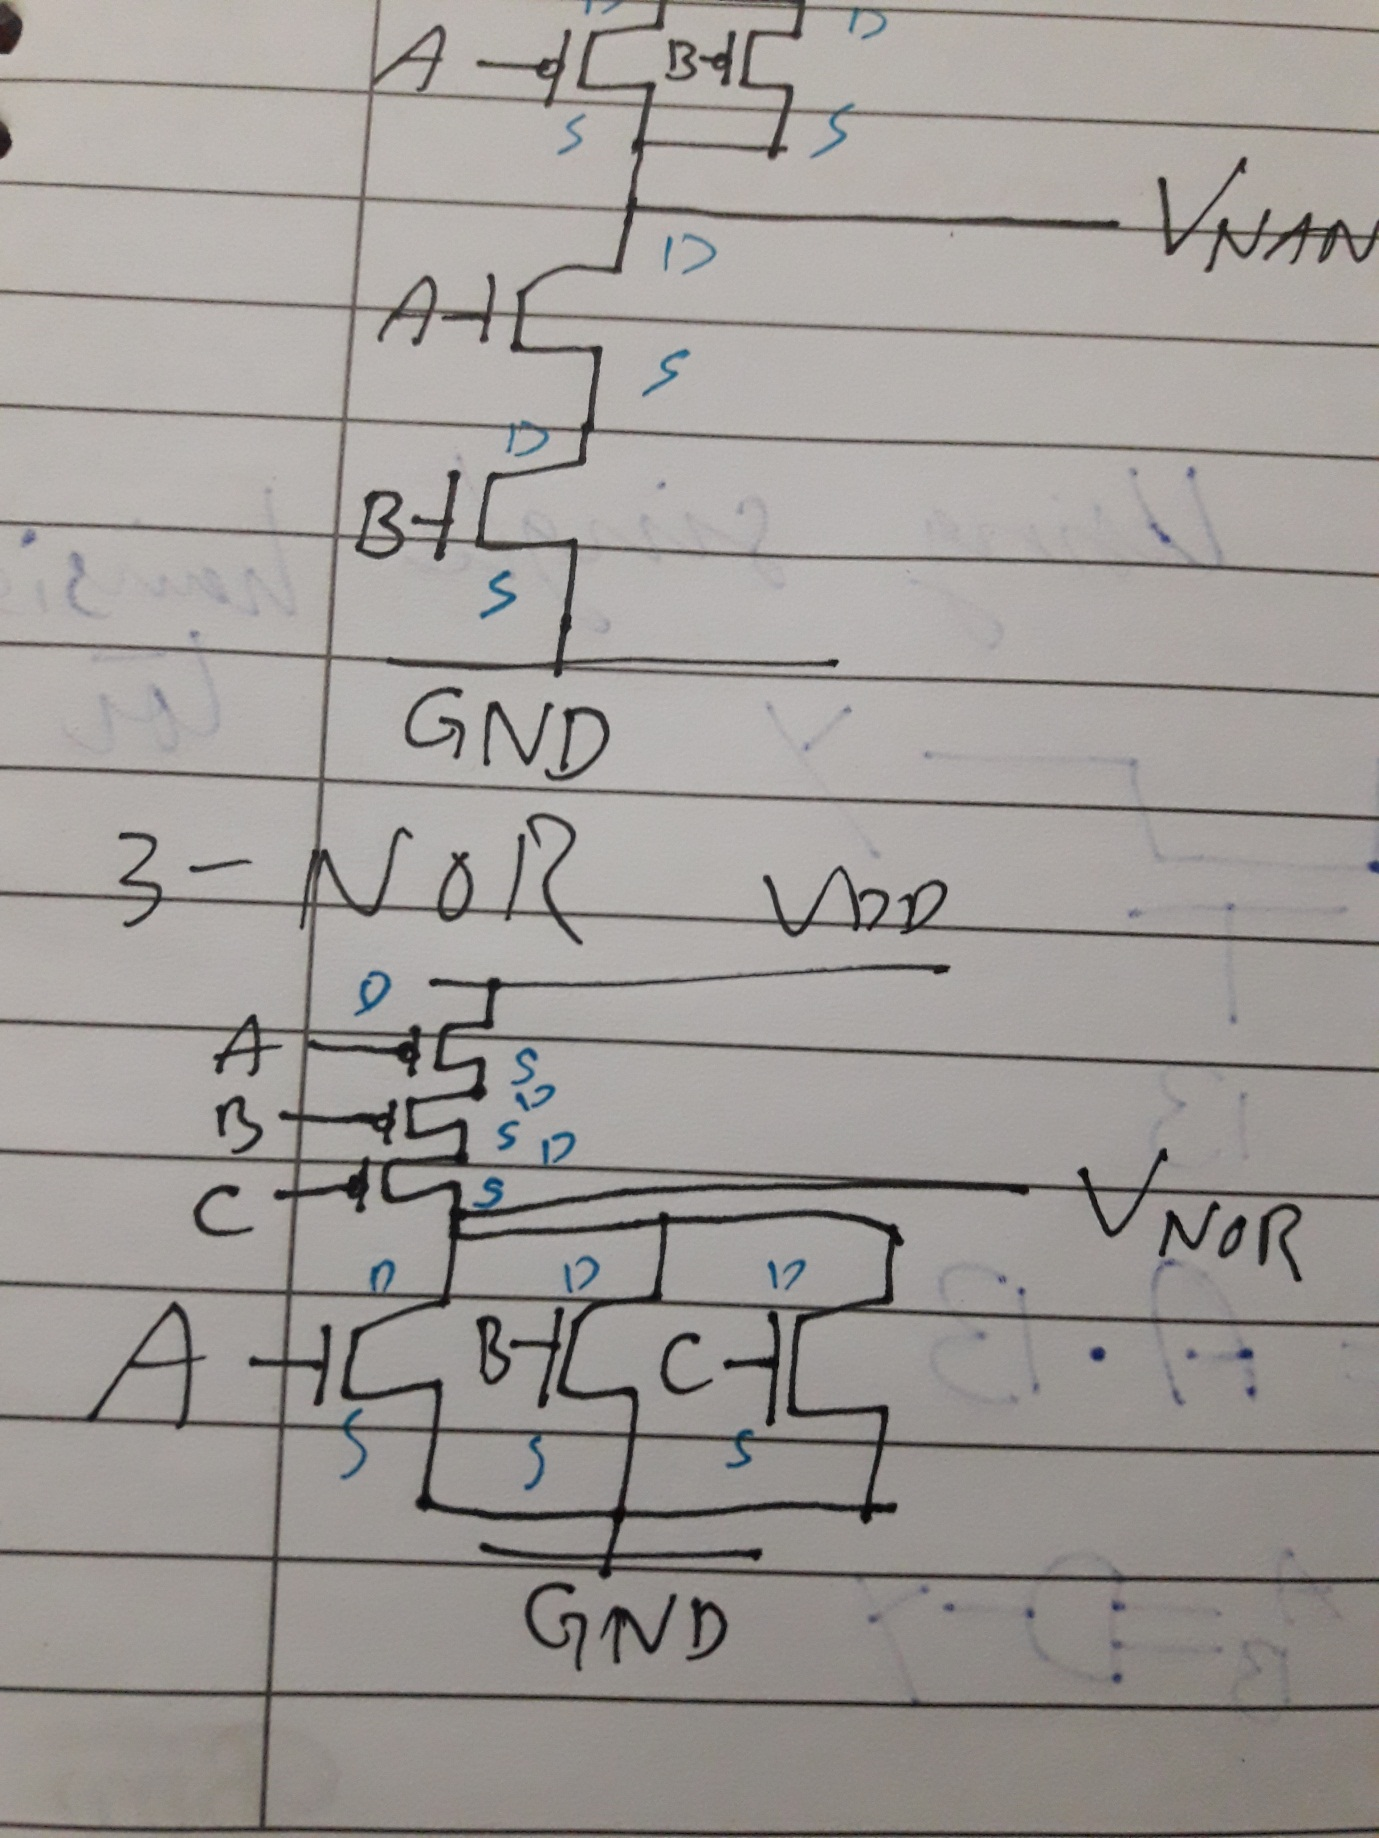 D D
A B
S S
VNAN
D
A
S
D
B
S
GND
3-NOR VDD
D
A S
D
B S D
C S
VNOR
D D D
A B C
S S S
GND